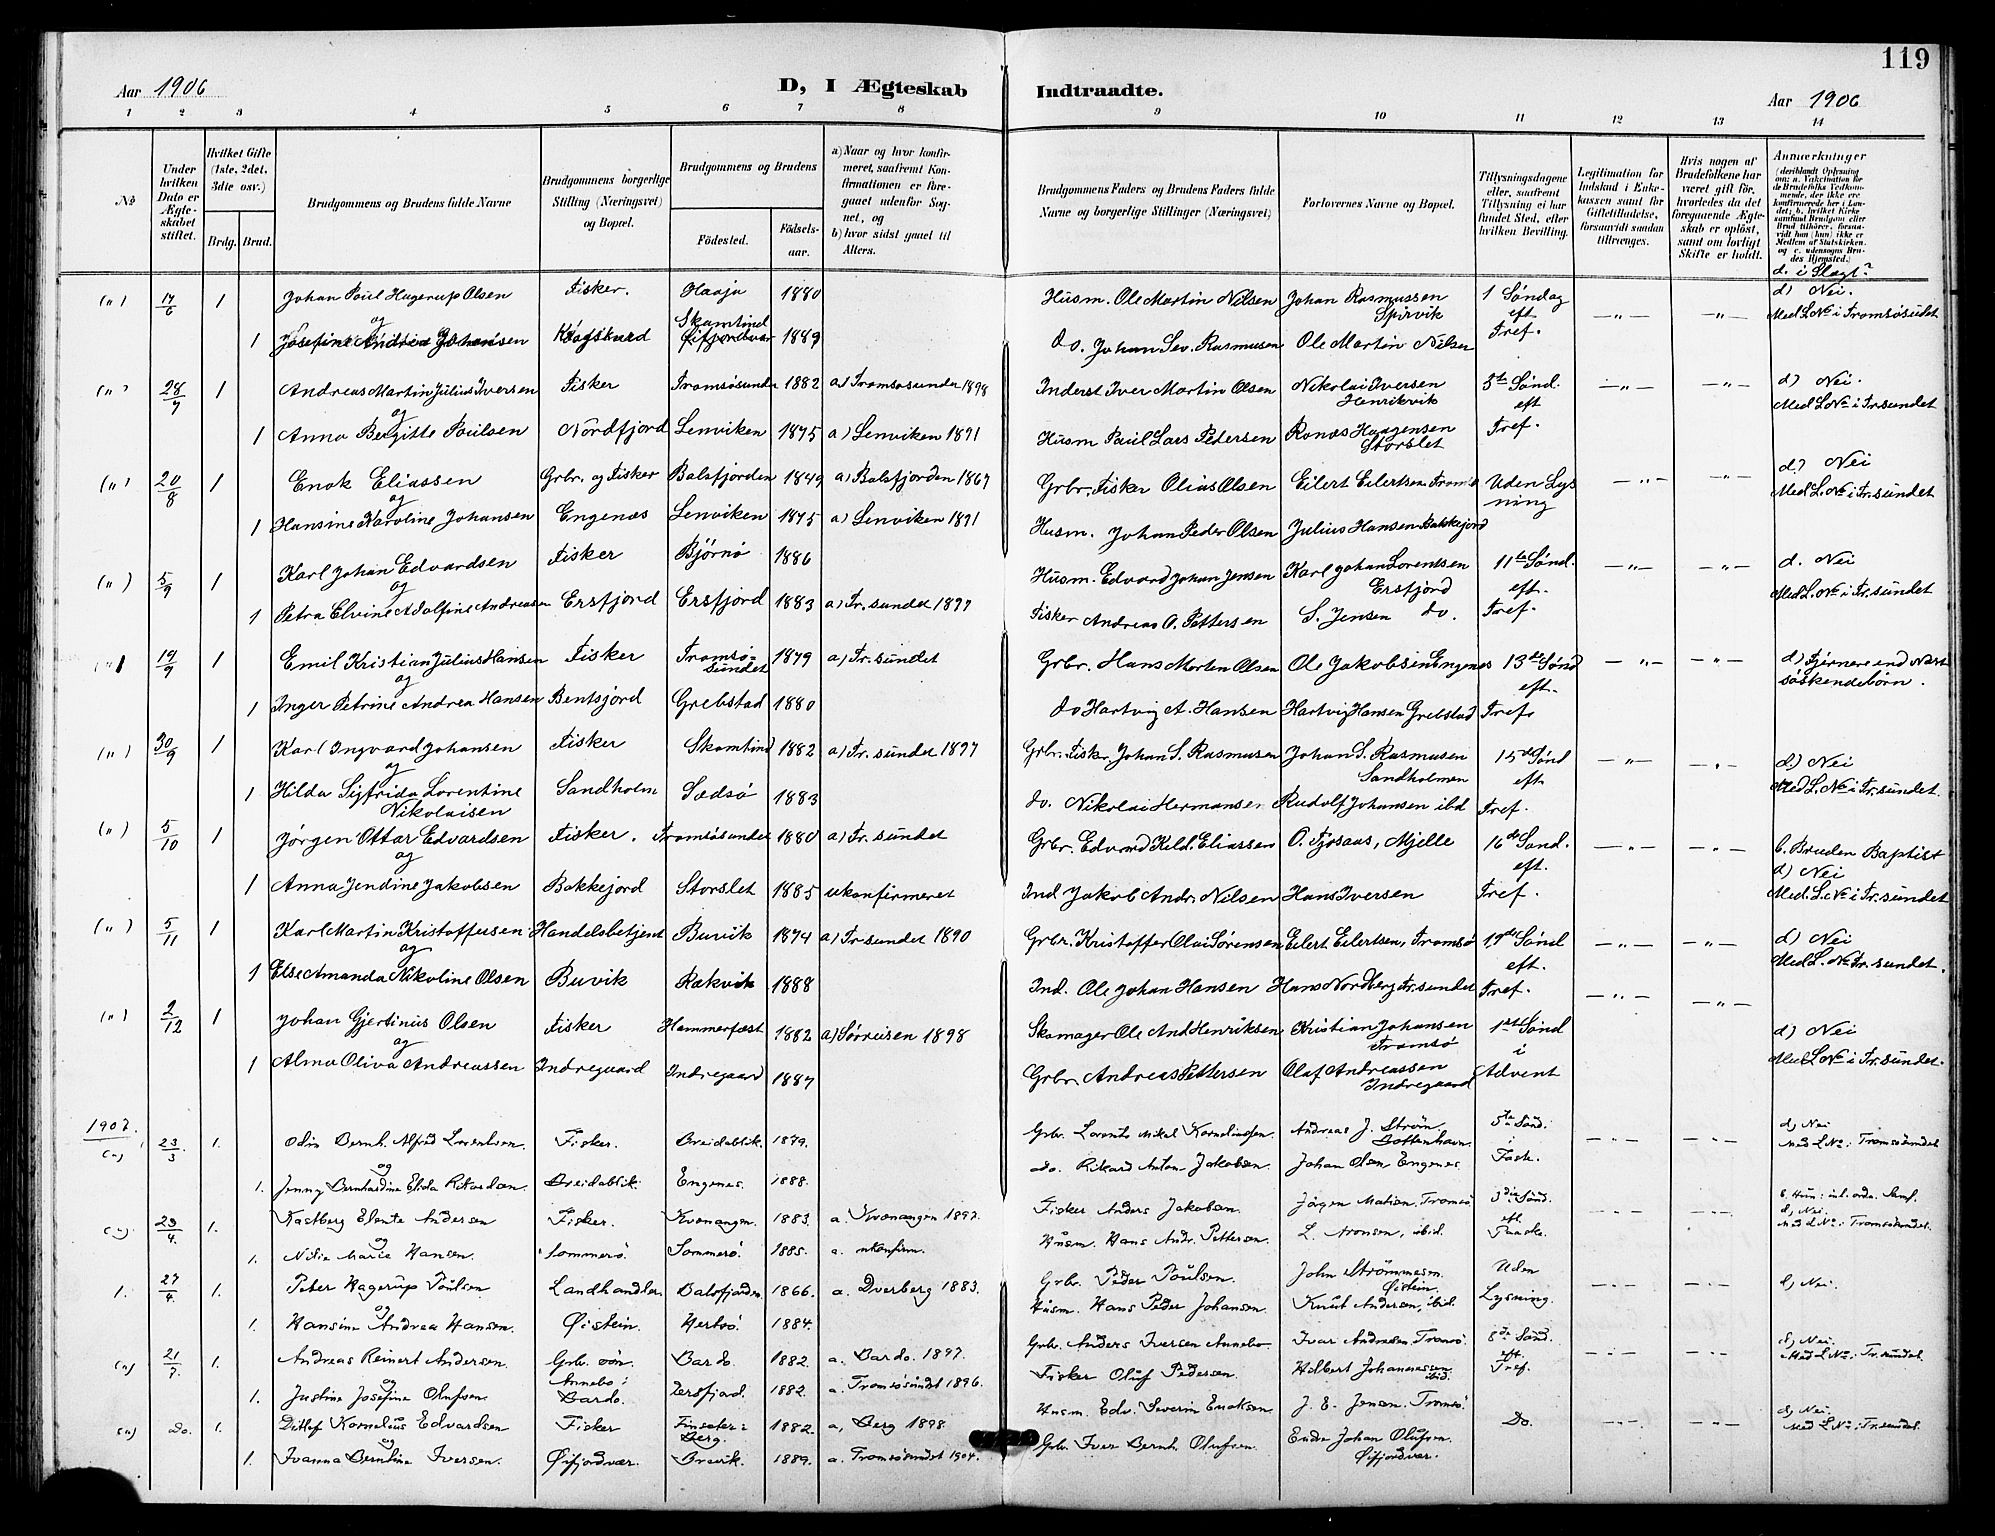 119
Aar 1906
D, I Ægteskab Indtraadte.
Aar 1906
1 2 3 4 5 6 7 8 9 10 11 12 13 14
No
Under hvilken Dato er Ægteskabet stiftet.
Hvilket Gifte (1ste, 2det, 3die osv.)
Brdg. Brud.
Brudgommens og Brudens fulde Navne
Brudgommens borgerlige Stilling (Næringsvei) og Bopæl.
Brudgommens og Brudens
Fødested.
Fødselsaar.
a) Naar og hvor konfirmeret, saafremt Konfirmationen er foregaaet udenfor Sognet, og
b) hvor sidst gaaet til Alters.
Brudgommens Faders og Brudens Faders fulde Navne og borgerlige Stillinger (Næringsvei)
Forlovernes Navne og Bopæl.
Tillysningsdagene eller, saafremt Tillysning ei har fundet Sted, efter hvilken Bevilling.
Legitimation for Indskud i Enkekassen samt for Giftetilladelse, forsaavidt saadan tiltrænges.
Hvis nogen af Brudefolkene har været gift før, hvorledes da det foregaaende Ægteskab er opløst, samt om lovligt Skifte er holdt.
Anmærkninger (deriblandt Oplysning om: a. Vakcination for de Brudefolks Vedkommende, der ikke ere konfirmerede her i Landet; b. hvilket Kirkesamfund Brudgom eller Brud tilhører, forsaavidt han (hun) ikke er Medlem af Statskirken, og c. udensogns Brudes Hjemsted.)
d. i Slægt?
(") 17/6 1 Johan Poul Hagerup Olsen Fisker. Haaja 1880 Husm. Ole Martin Nilsen Johan Rasmussen Spirvik 1 Søndag eft —"— —"— d) Nei. Med L.No i Tromsøsundet
og
1 Josefine Andrea Johansen Skamtind Øifjordvær 1889 do. Johan Sev. Rasmusen Ole Martin Nilsen Tref.
(") 28/7 1 Andreas Martin Julius Iversen Fisker Tromsøsundet 1882 a) Tromsøsundet 1898 Inderst Iver Martin Olsen Nikolai Iversen Henrikvik Sønd. eft —"— —"— d) Nei. Med L.No i Tr.sundet
og
1 Anna Bergitte Poulsen Nordfjord Lenviken 1875 a) Lenviken 1891 Husm Paul Lars Pedersen Haagensen Storslet Tref.
(") 20/8 1 Enok Eliassen Grbr. og Fisker Balsfjorden 1849 a) Balsfjorden 1867 Grbr. Fisker Olius Olsen Eilert Eilertsen Tromsø Uden Lysning —"— —"— d) Nei Med L.No i Tr.sundet
og
1 Hansine Karoline Johansen Engenæs Lenviken 1875 a) Lenviken 1891 Husm. Johan Peder Olsen Julius Hansen Bakkejord
(") 5/9 1 Karl Johan Edvardsen Fisker Bjørnø 1886 Husm. Edvard Johan Jensen Karl Johan Lorentsen Ersfjord 11te Sønd. eft. —"— —"— d. Nei Med L.No i Tr.sundet
og
1 Petra Elvine Adolfine Andreasen Ersfjord Ersfjord 1883 a) Tr.sundet 1897 Fisker Andreas O. Pettersen S. Jensen do. Tref.
(") 19/9 1 Emil Kristian Julius Hansen Fisker Tromsøsundet 1879 a) Tr.sundet Grbr. Hans Morten Olsen Ole Jakobsen Engenes 13de Sønd eft. —"— —"— d) Fjernere end Næstsøskendebørn.
og
1 Inger Petrine Andrea Hansen Bentsjord Grebstad 1880 do Hartvig A. Hansen Hartvig Hansen Grebstad Tref.
(") 30/9 1 Karl Ingvard Johansen Fisker Skamtind 1882 a) Tr.sundet 1897 Grbr. Fisk. Johan S. Rasmusen Johan S. Rasmusen Sandholmen 15de Sønd eft —"— —"— d) Nei Med L.No i Tr.sundet.
og
1 Hilda Sigfrida Lorentine Nikolaisen Sandholm Sødsø 1883 do. Nikolai Hermansen Rudolf Johansen ibd Tref.
(") 5/10 1 Jørgen Ottar Edvardsen Fisker. Tromsøsundet 1880 a) Tr.sundet Grbr. Edvard Kild. Eliassen O. Fjøsaas, Mjelle 16de Sønd. eft. —"— —"— b. Bruden Baptist d) Nei Med. L.No i Tr.sundet
og
1 Anna Jendine Jakobsen Bakkejord Storslet 1885 ukonfirmeret Ind. Jakob Andr. Nilsen Hans Iversen Tref.
(") 5/11 1 Karl Martin Kristoffersen Handelsbetjent Buvik 1874 a) Tr.sundet 1890 Grbr. Kristoffer Olai Sørensen Eilert Eilertsen, Tromsø Sønd eft. —"— —"— d) Nei Med L.No Tr.sundet.
og
1 Else Amanda Nikoline Olsen Buvik Rækvik 1888 Ind. Ole Johan Hansen Hans Nordberg Tr.sundet Tref. —"— —"—
(") 2/12 1 Johan Gjertinius Olsen Fisker Hammerfæst 1882 a) Sørreisen 1898 Skomager Ole And Henriksen Kristian Johansen Tromsø 1ste Sønd i d) Nei Med L.No i Tr.sundet.
og
1 Alma Oliva Andreassen Indregaard Indregaard 1887 Grbr. Andreas Pettersen Olaf Andreassen Indregaard Advent
1907.
(") 23/3 1. Odin Bernh. Alfred Lorentsen. Fisker. Breidablik. 1879. Grbr. Lorents Mikal Korneliussen. Andreas J. Strøm, Bottenhavn. 5te Sønd. i —"— —"— d) Nei Med L No i Tromsøsundet
og
1. Jenny Bernhardine Elida Rikardsen. Breidablik. Engenes. 1888. do. Rikard Anton Jakobsen. Johan Olsen Engenes. Faste.
(") 23/4. 1. Kastberg Elonte Andersen Fisker. Kvænangen. 1883. a. Kvænangen 1897. Fisker Anders Jakobsen. Jørgen Tromsø 3die Sønd. eft. —"— —"— d) Nei. Med L No i Tromsøsundet.
og
1. Marie Hansen. Sommerø. Sommerø. 1885. a. ukonfirm. Husm. Hans Andr. Pettersen. L. Aronsen, ibid. Paaske.
1. 27/4. 1. Peter Hagerup Poulsen Landhandler. Balsfjorden. 1866. a. Dverberg 1883. Grbr. Peder Poulsen. John Strømmesen. Øistein. Uden Lysning. —"— —"— d) Nei.
og
1. Hansine Andrea Hansen. Øistein. 1884. Husm. Hans Peder Johansen. Knut Andersen, ibid.
(") 21/7. 1. Andreas Reinert Andersen. Grbr. søn. Bardo. 1882. a. Bardo. 1897. Grbr. Anders Iversen Annebo Ivar Andresen. Tromsø. 8de Sønd. eft. —"— —"— d) Nei. Med L No i Tr.sundet.
og
1. Justine Josefine Olufsen Annebo i Bardo. Zersfjord. 1882. a. Tromsøsundet 1896. Fisker Oluf Pedersen. Johannessen ibid. Tref.
(") Do. 1. Ditlef Kornelius Edvardsen Fisker Finsæter i Berg. 1882. a, Berg 1898 Husm. Edv. Severin Eriksen J. E. Jensen. Tromsø Do. —"— —"— d) Nei. Med L No i Tr.sundet.
og
1. Ivanna Berntine Iversen. Øifjordvær. Brevik. 1889. a. Tromsøsundet 1904. Grbr. Iver Bernh. Olufsen. Johan Olufsen. Øifjordvær.